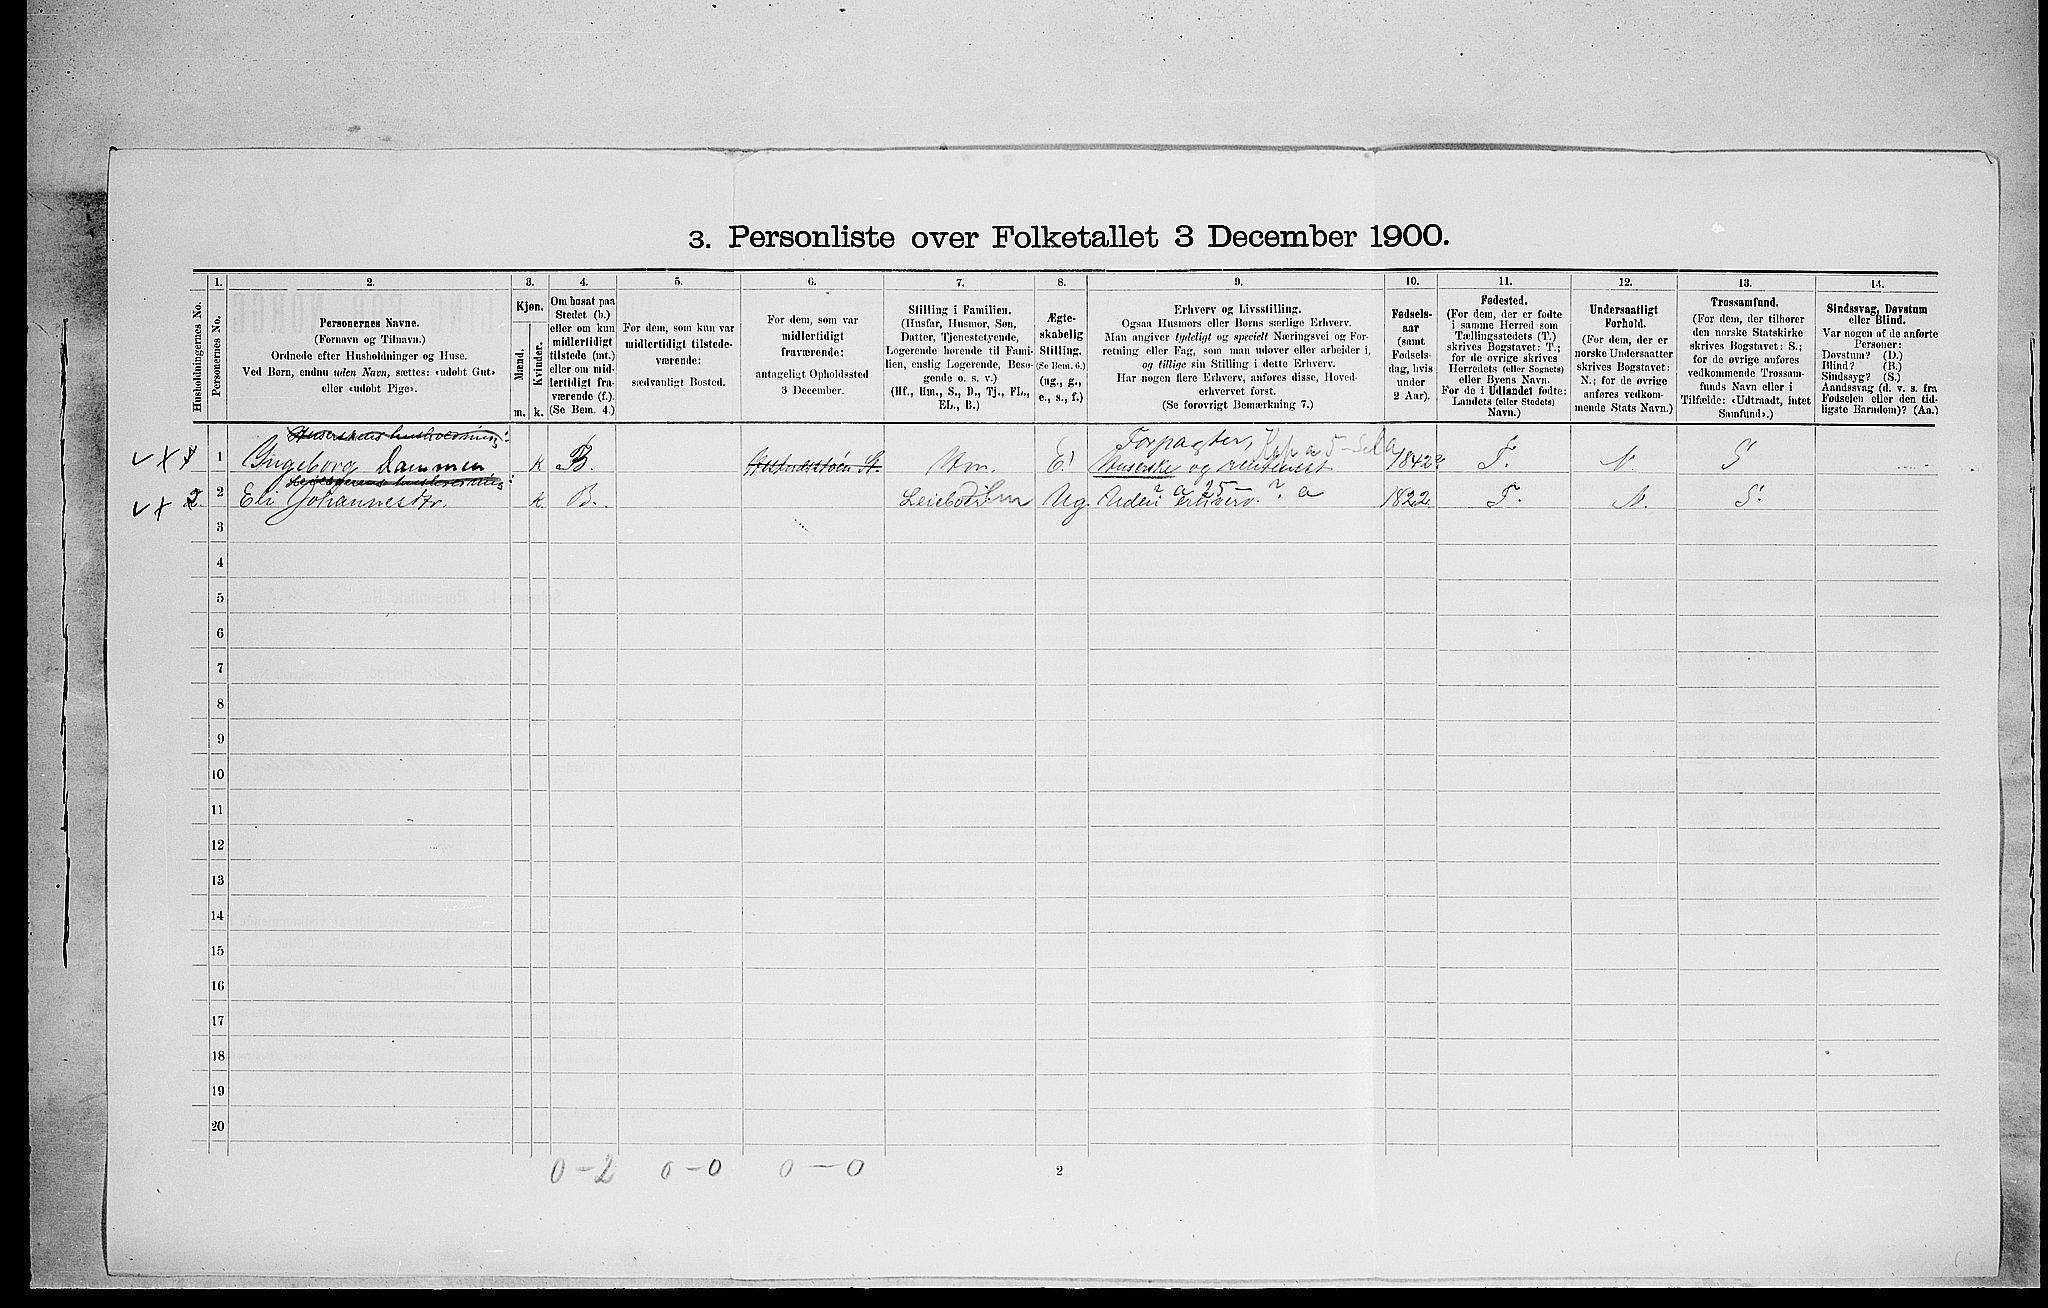 3. Personliste over Folketallet 3 December 1900.
Husholdningernes No.
1.
Personernes No.
2.
Personernes Navne.
(Fornavn og Tilnavn.)
Ordnede efter Husholdninger og Huse.
Ved Børn, endnu uden Navn, sættes: «udøbt Gut»
eller «udøbt Pige».
3.
Kjøn.
Mænd.
Kvinder.
m.
k.
4.
Om bosat paa
Stedet (b.)
eller om kun
midlertidigt
tilstede (mt.)
eller om mid-
lertidigt fra-
værende (f.).
(Se Bem. 4.)
5.
For dem, som kun var
midlertidigt tilstede-
værende:
sædvanligt Bosted.
6.
For dem, som var
midlertidigt
fraværende:
antageligt Opholdssted
3 December.
7.
Stilling i Familien.
(Husfar, Husmor, Søn,
Datter, Tjenestetyende,
Logerende hørende til Fami-
lien, enslig Logerende, Besø-
gende o. s. v.)
(Hf., Hm., S., D., Tj., FL.,
EL., B.)
8.
Ægte-
skabelig
Stilling.
(Se Bem. 6.)
(ug., g.,
e., s., f.)
9.
Erhverv og Livsstilling.
Ogsaa Husmors eller Børns særlige Erhverv.
Man angiver tydeligt og specielt Næringsvei og For-
retning eller Fag, som man udøver eller arbeider i,
og tillige sin Stilling i dette Erhverv.
Har nogen flere Erhverv, anføres disse, Hoved-
erhvervet først.
(Se forøvrigt Bemærkning 7.)
10.
Fødsels-
aar
(samt
Fødsels-
dag, hvis
under
2 Aar).
11.
Fødested.
(For dem, der er fødte
i samme Herred som
Tællingsstedets (T.)
skrives Bogstavet: T.;
for de øvrige skrives
Herredets (eller Sognets)
eller Byens Navn.
For de i Udlandet fødte:
Landets (eller Stedets)
Navn.)
12.
Undersaatligt
Forhold.
(For dem, der er
norske Undersaatter
skrives Bogstavet:
N.; for de øvrige
anføres vedkom-
mende Stats Navn.)
13.
Trossamfund.
(For dem, der tilhører
den norske Statskirke
skrives Bogstavet: S.;
for de øvrige anføres
vedkommende Trossam-
funds Navn eller i
Tilfælde: «Udtraadt, intet
Samfund».)
14.
Sindssvag, Døvstum
eller Blind.
Var nogen af de anførte
Personer:
Døvstum? (D.)
Blind? (B.)
Sindssyg? (S.)
Aandssvag (d. v. s. fra
Fødselen eller den tid-
ligste Barndom)? (Aa.)
Forpagter,
1 Ingeborg Dammen. k B. Hm. E. Huserske og 1842 T. N. S
2. 2 Eli Johannesdtr. k. B. Ug. Uden Erhverv. 1822. T. N. S.
3
4
5
6
7
8
9
10
11
12
13
14
15
16
17
18
19
20
0-2 0-0 0-0 2